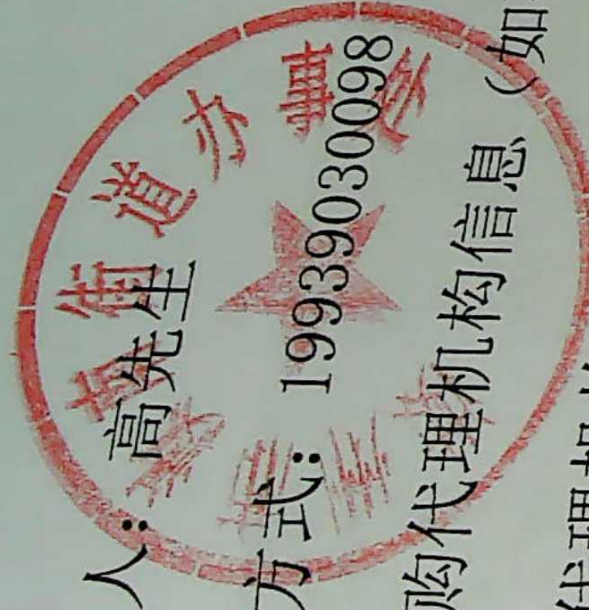 人：高先生
方式：19939030098
购代理机构信息（如
代理机构
街道办事处